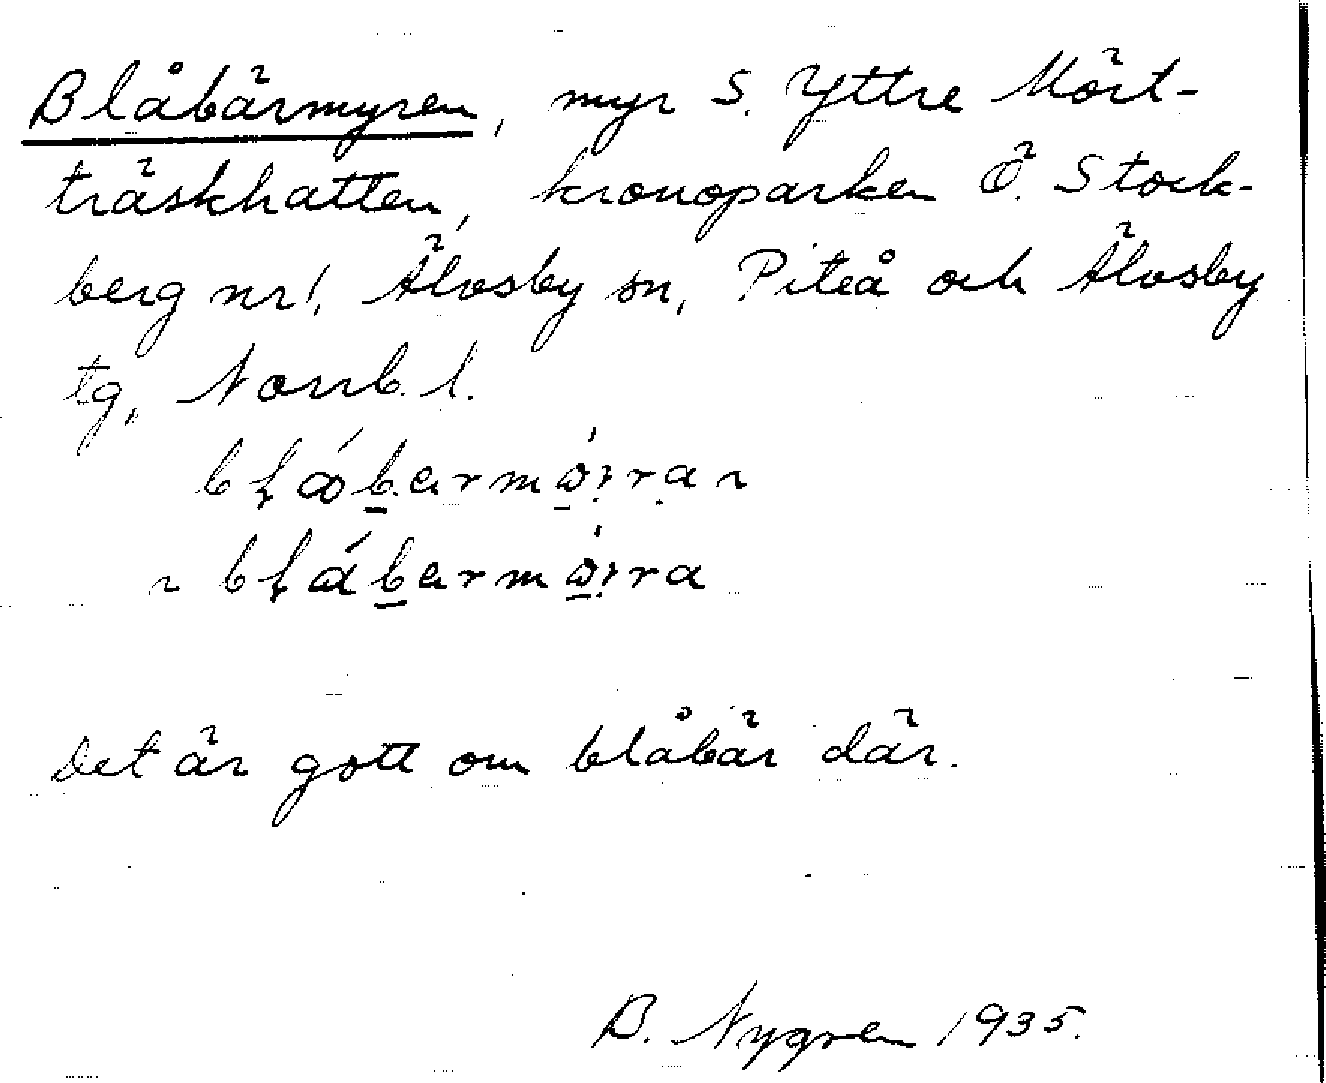 Blåbärmyren, myr S. Yttre Mört-
träskhatten, kronoparken Ö. Stock-
berg nr 1, Älvsby sn, Piteå och Älvsby
tg, Norrb. l.
Det är gott om blåbär där.
B. Nygren 1935.